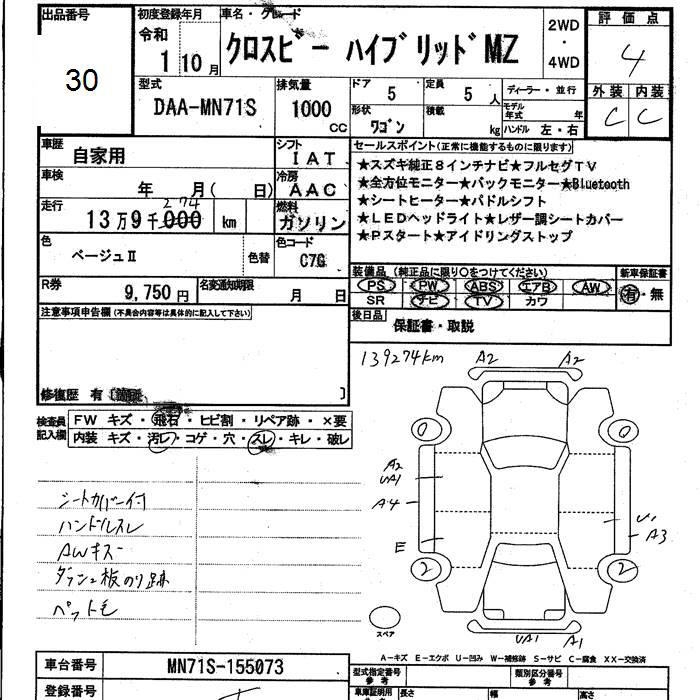 出品番号
30
初度登録年月
令和
1 10 月
車名・グレード
クロスビー ハイブリッドMZ
2WD
・
4WD
評価点
4
外装 内装
C C
型式
DAA-MN71S
排気量
1000
CC
ドア
5
定員
5 人
形状
ワゴン
積載
kg
ディーラー・並行
モデル年式 年
ハンドル 左・右
車歴
自家用
シフト
IAT
車検
年 月( 日)
冷房
AAC
走行
274
13万9千000 km
燃料
ガソリン
色
ベージュⅡ
色替
色コード
C7G
R券
9,750円
名変通知期限
月 日
セールスポイント(正常に機能するものに限ります)
★スズキ純正8インチナビ★フルセグTV
★全方位モニター★バックモニター★Bluetooth
★シートヒーター★パドルシフト
★LEDヘッドライト★レザー調シートカバー
★Pスタート★アイドリングストップ
装備品(純正品に限り○をつけてください)
新車保証書
PS PW ABS エアB AW
SR ナビ TV カワ
有・無
後日品
保証書・取説
注意事項申告欄(不具合内容等は具体的に記入して下さい)
修復歴 有
検査員記入欄
FW キズ・飛石・ヒビ割・リペア跡・×要
内装 キズ・汚レ・コゲ・穴・スレ・キレ・破レ
シートカバー付
ハンドルスレ
AWキズ
ダッシュ板のり跡
ペット毛
139274km
A2 A2
0 0
A2
UA1
A4
E
U1
A3
2 2
UA1 A1
スペア
A-キズ E-エクボ U-凹み W-補修跡 S-サビ C-腐食 XX-交換済
車台番号
MN71S-155073
登録番号
型式指定番号
参考
類別区分番号
参考
車庫証明用
長さ
幅
高さ